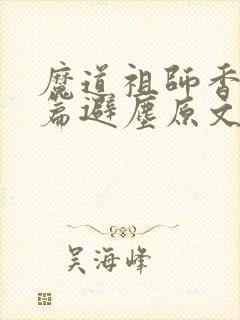 魔道祖師香
篇避塵原文
吴海峰